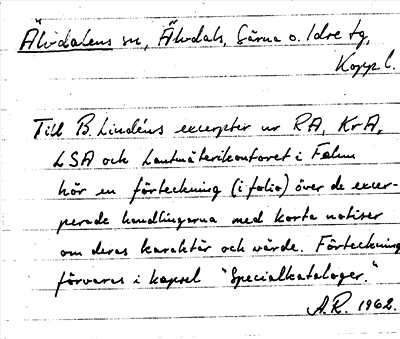 Älvdalens sn, Älvdals, Särna o. Idre tg,
Kopp. l.
Till B. Lindéns excerpter ur RA, KrA,
LSA och Lantmäterikontoret i Falun
hör en förteckning (i folio) över de excer-
perade handlingarna med korta notiser
om deras karaktär och värde. Förteckning
förvaras i kapsel "Specialkataloger."
A.R. 1962.